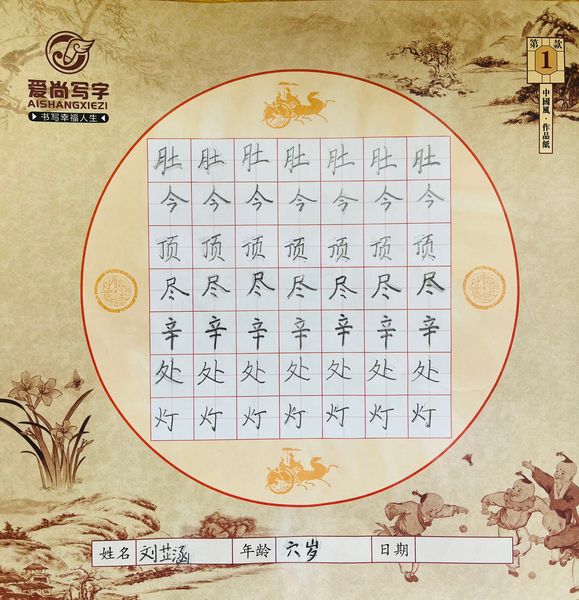 爱尚写字
AISHANGXIEZI
书写幸福人生
第1款
中國風·作品紙
肚肚肚肚肚肚肚
今今今今今今今
顶顶顶顶顶顶顶
尽尽尽尽尽尽尽
辛辛辛辛辛辛辛
处处处处处处处
灯灯灯灯灯灯灯
姓名 刘芷涵 年龄 六岁 日期